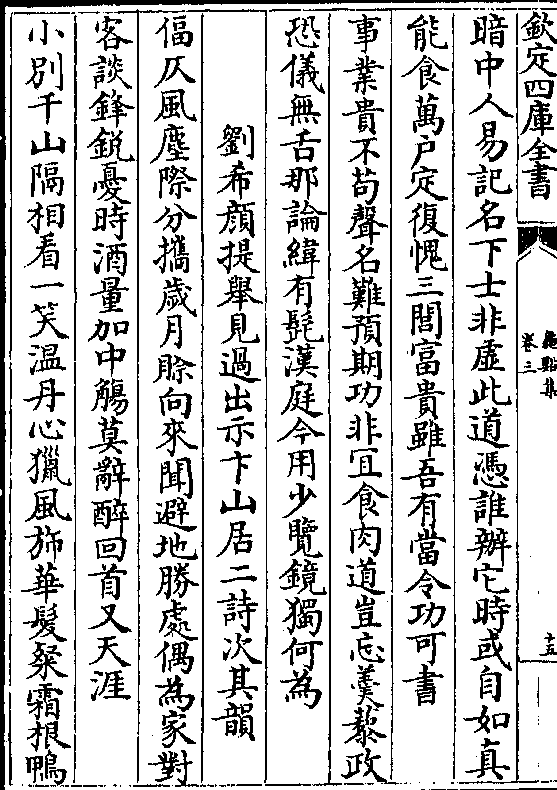 欽定四庫全書
龜谿集
卷三
十五
暗中人易記名下士非虛此道憑誰辦它時或自如真
能食萬户定復愧三閭富貴雖吾有當令功可書
事業貴不苟聲名難預期功非冝食肉道豈忘羮藜政
恐儀無舌那論緯有髭漢庭今用少覽鏡獨何為
劉希顔提舉見過出示卞山居二詩次其韻
偪仄風塵際分攜歲月賒向來聞避地勝處偶為家對
客談鋒鋭憂時酒量加中觴莫辭醉回首又天涯
小别千山隔相看一笑温丹心獵風斾華髮粲霜根鴨